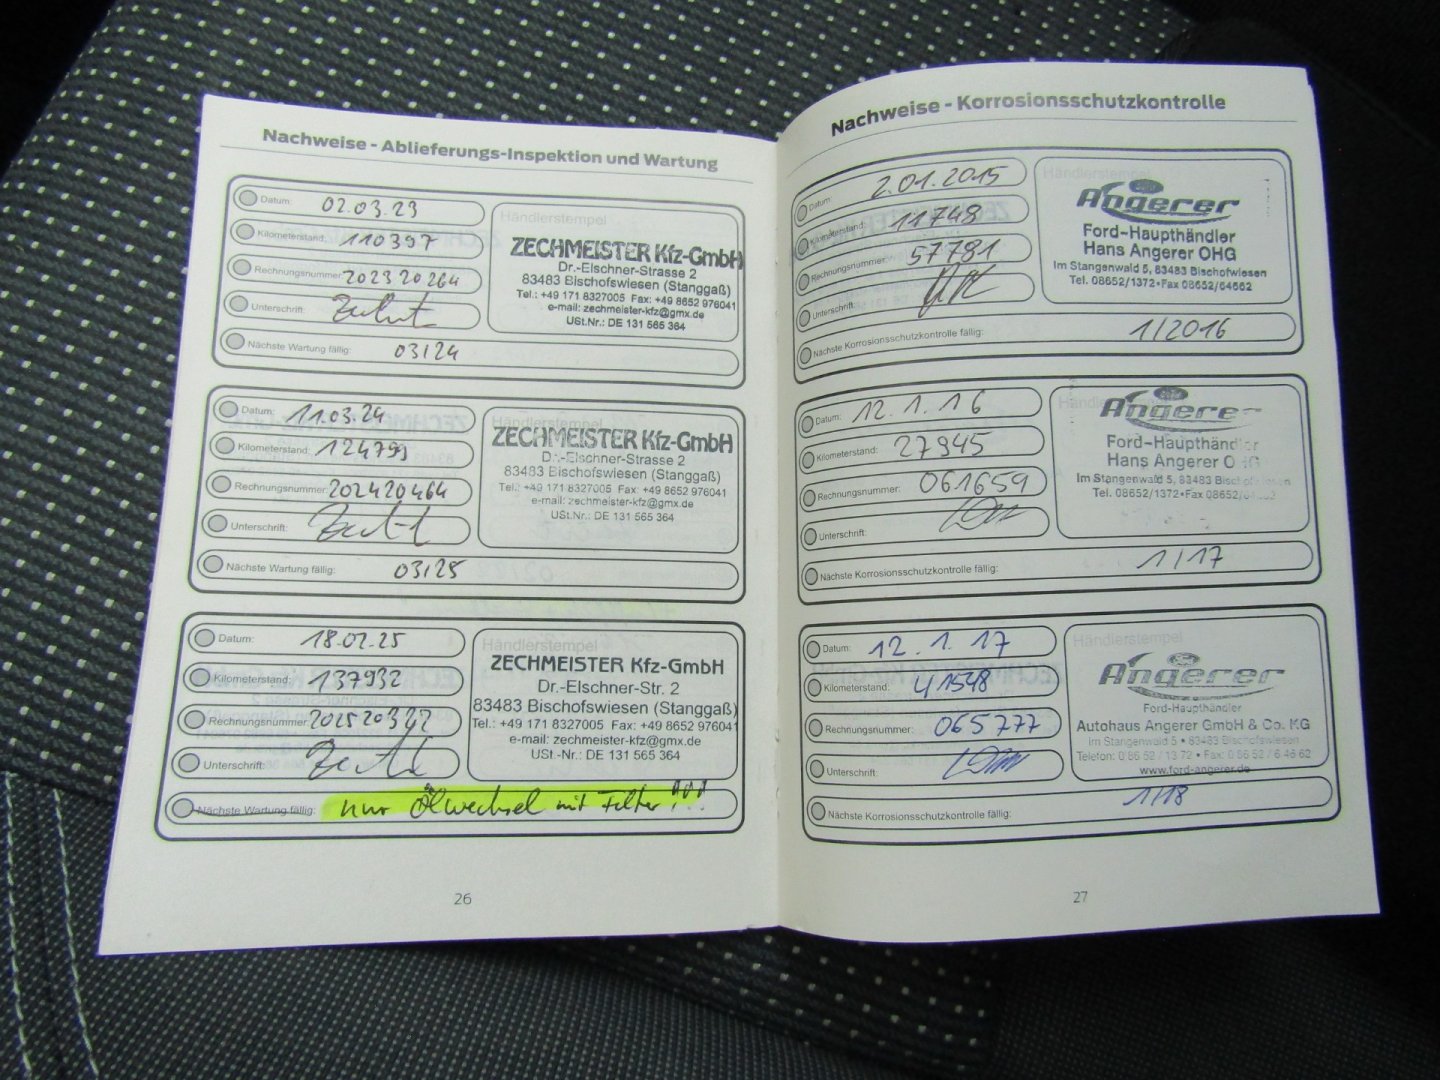 Nachweise - Ablieferungs-Inspektion und Wartung
Datum: 02.03.23
Kilometerstand: 110397
Rechnungsnummer: 202320264
Unterschrift:
Nächste Wartung fällig: 03/24
Händlerstempel
ZECHMEISTER Kfz-GmbH
Dr.-Elschner-Strasse 2
83483 Bischofswiesen (Stanggaß)
Tel.: +49 171 8327005 Fax: +49 8652 976041
e-mail: zechmeister-kfz@gmx.de
USt.Nr.: DE 131 565 364
Datum: 11.03.24
Kilometerstand: 124799
Rechnungsnummer: 202420464
Unterschrift:
Nächste Wartung fällig: 03/25
Händlerstempel
ZECHMEISTER Kfz-GmbH
Dr.-Elschner-Strasse 2
83483 Bischofswiesen (Stanggaß)
Tel.: +49 171 8327005 Fax: +49 8652 976041
e-mail: zechmeister-kfz@gmx.de
USt.Nr.: DE 131 565 364
Datum: 18.02.25
Kilometerstand: 137932
Rechnungsnummer: 202520322
Unterschrift:
Nächste Wartung fällig: nur Ölwechsel mit Filter!!!
Händlerstempel
ZECHMEISTER Kfz-GmbH
Dr.-Elschner-Str. 2
83483 Bischofswiesen (Stanggaß)
Tel.: +49 171 8327005 Fax: +49 8652 976041
e-mail: zechmeister-kfz@gmx.de
USt.-Nr.: DE 131 565 364
26
Nachweise - Korrosionsschutzkontrolle
Datum: 2.01.2015
Kilometerstand: 11748
Rechnungsnummer: 57781
Unterschrift:
Nächste Korrosionsschutzkontrolle fällig: 1/2016
Händlerstempel
Angerer
Ford-Haupthändler
Hans Angerer OHG
Im Stangenwald 5, 83483 Bischofswiesen
Tel. 08652/1372•Fax 08652/64662
Datum: 12.1.16
Kilometerstand: 27945
Rechnungsnummer: 061659
Unterschrift:
Nächste Korrosionsschutzkontrolle fällig: 1/17
Angerer
Ford-Haupthändler
Hans Angerer OHG
Im Stangenwald 5, 83483 Bischofswiesen
Tel. 08652/1372•Fax 08652/
Datum: 12.1.17
Kilometerstand: 41548
Rechnungsnummer: 065777
Unterschrift:
Nächste Korrosionsschutzkontrolle fällig: 1/18
Händlerstempel
Angerer
Ford-Haupthändler
Autohaus Angerer GmbH & Co. KG
Im Stangenwald 5 • 83483 Bischofswiesen
Telefon: 0 86 52 / 13 72 • Fax: 0 86 52 / 6 46 62
www.ford-angerer.de
27